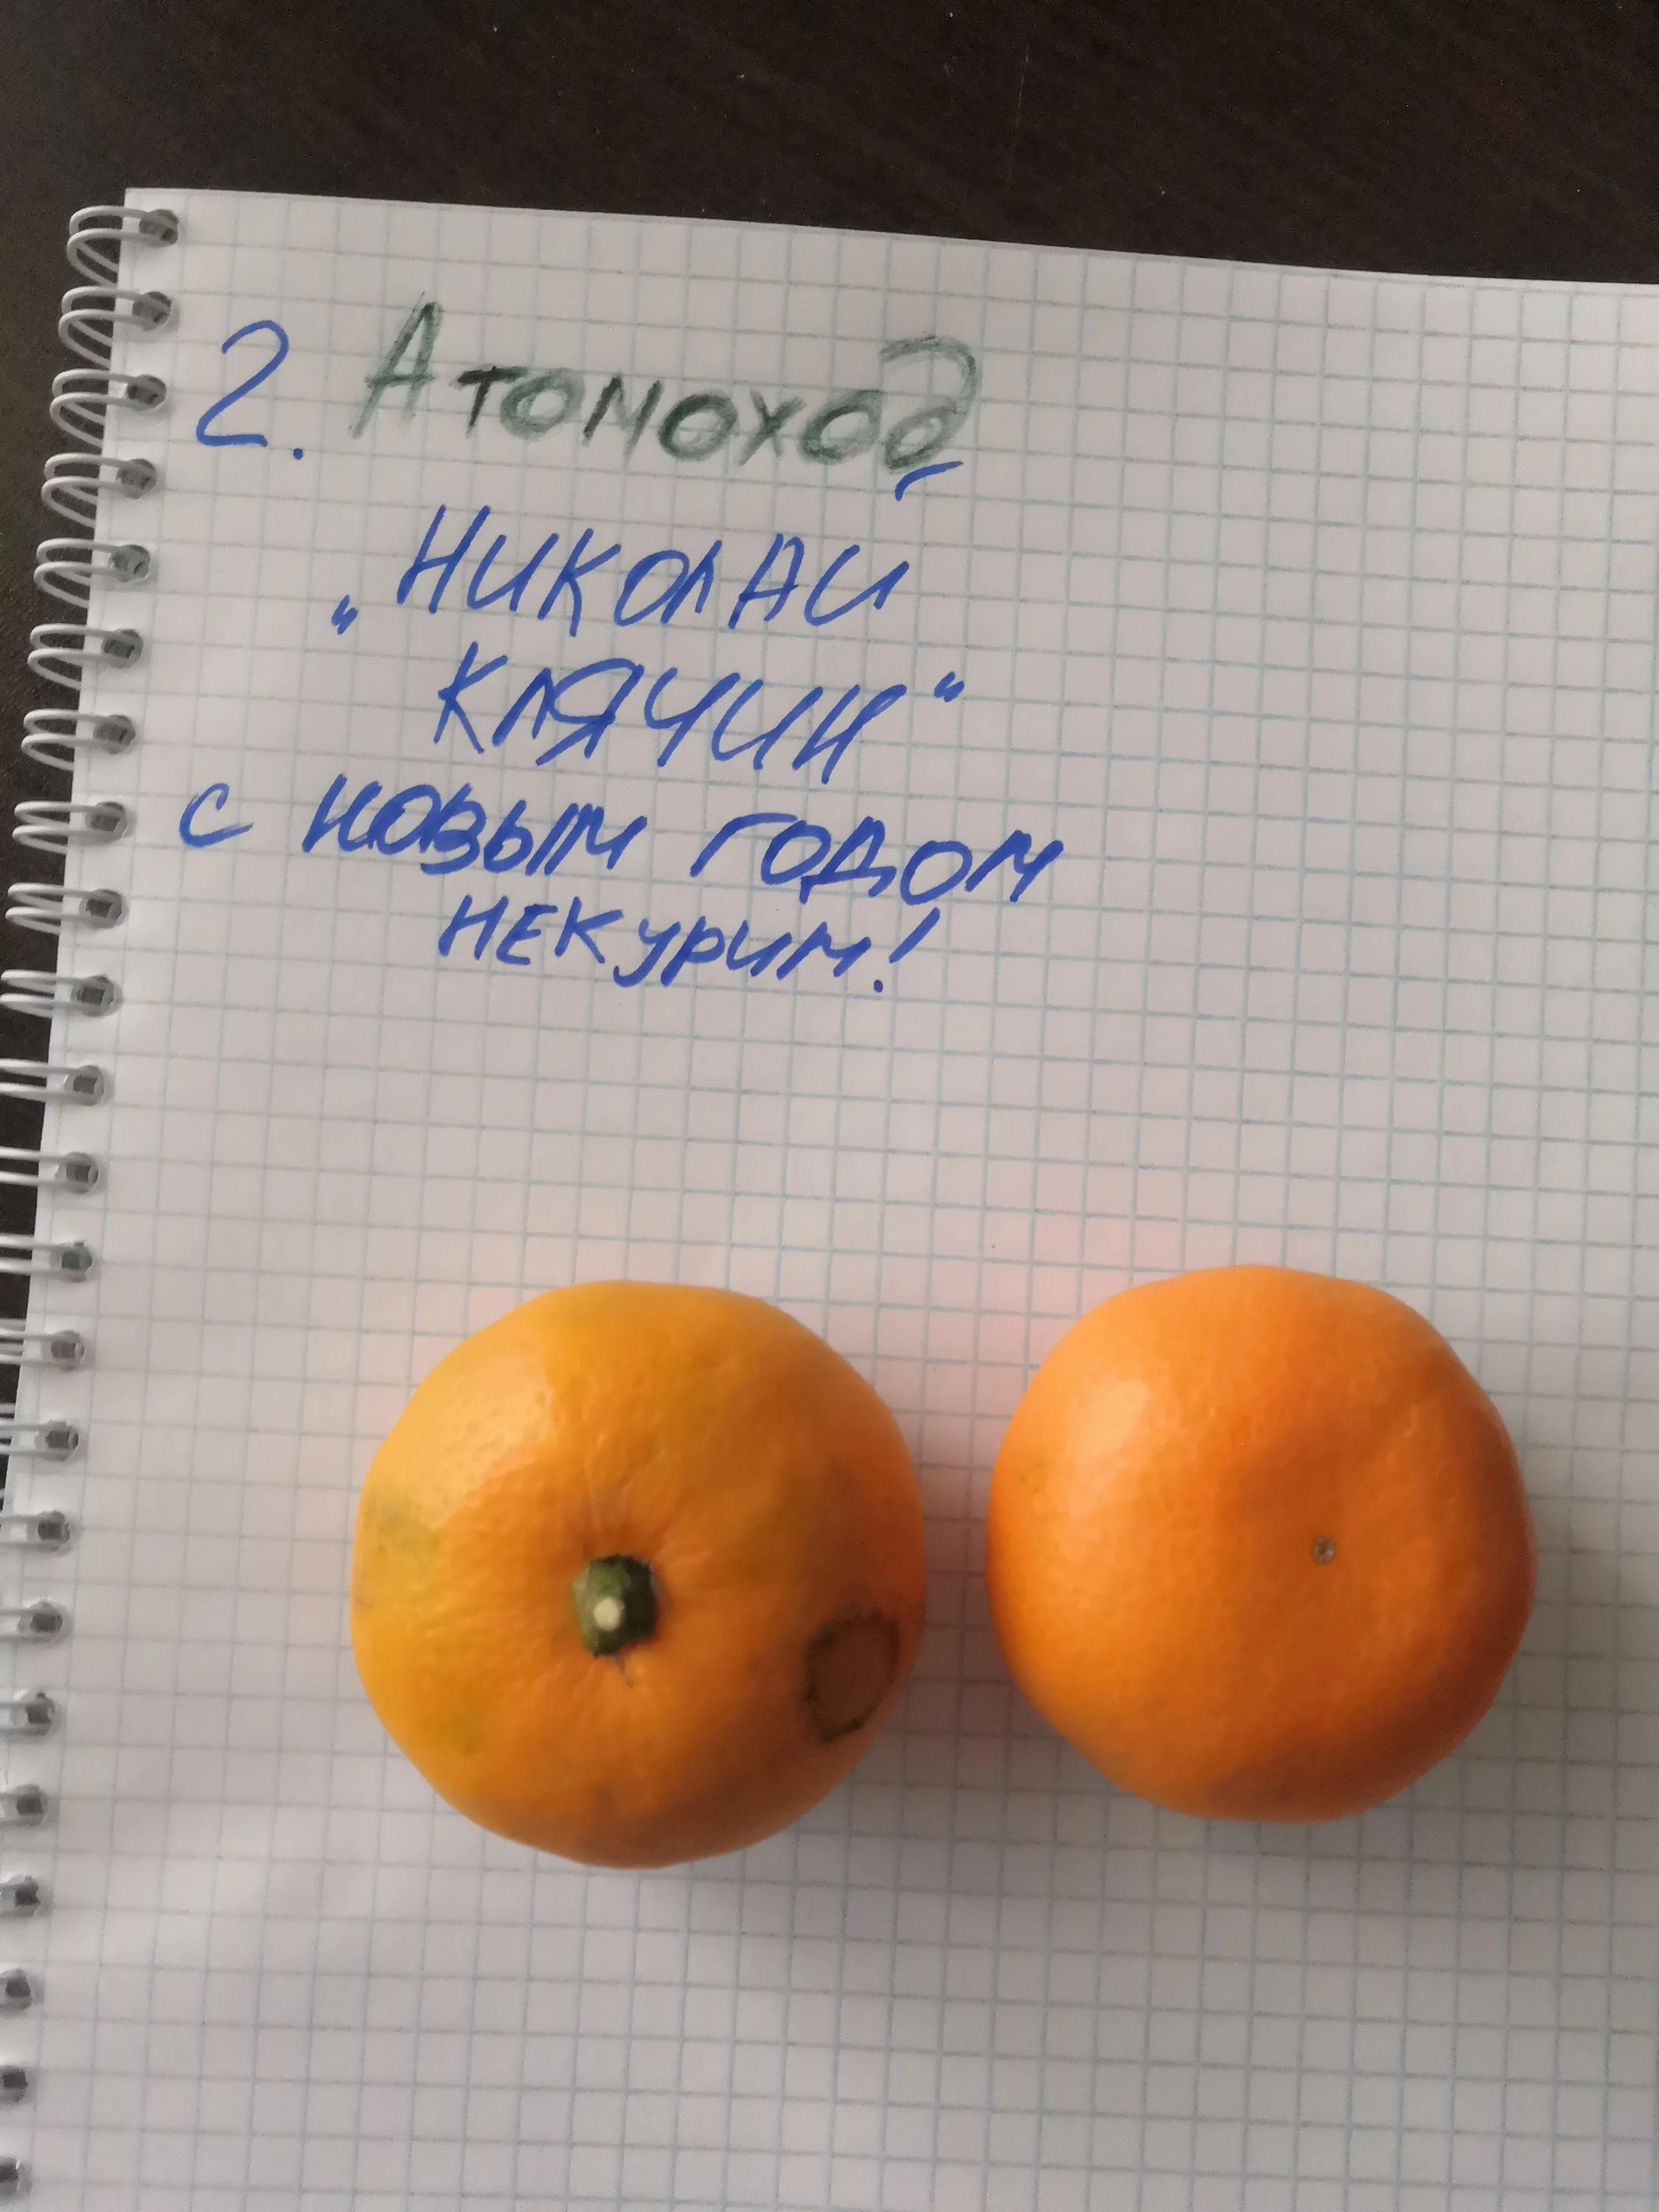 2. Атомоход
„Николай
Клячин“
с новым годом
некурим!